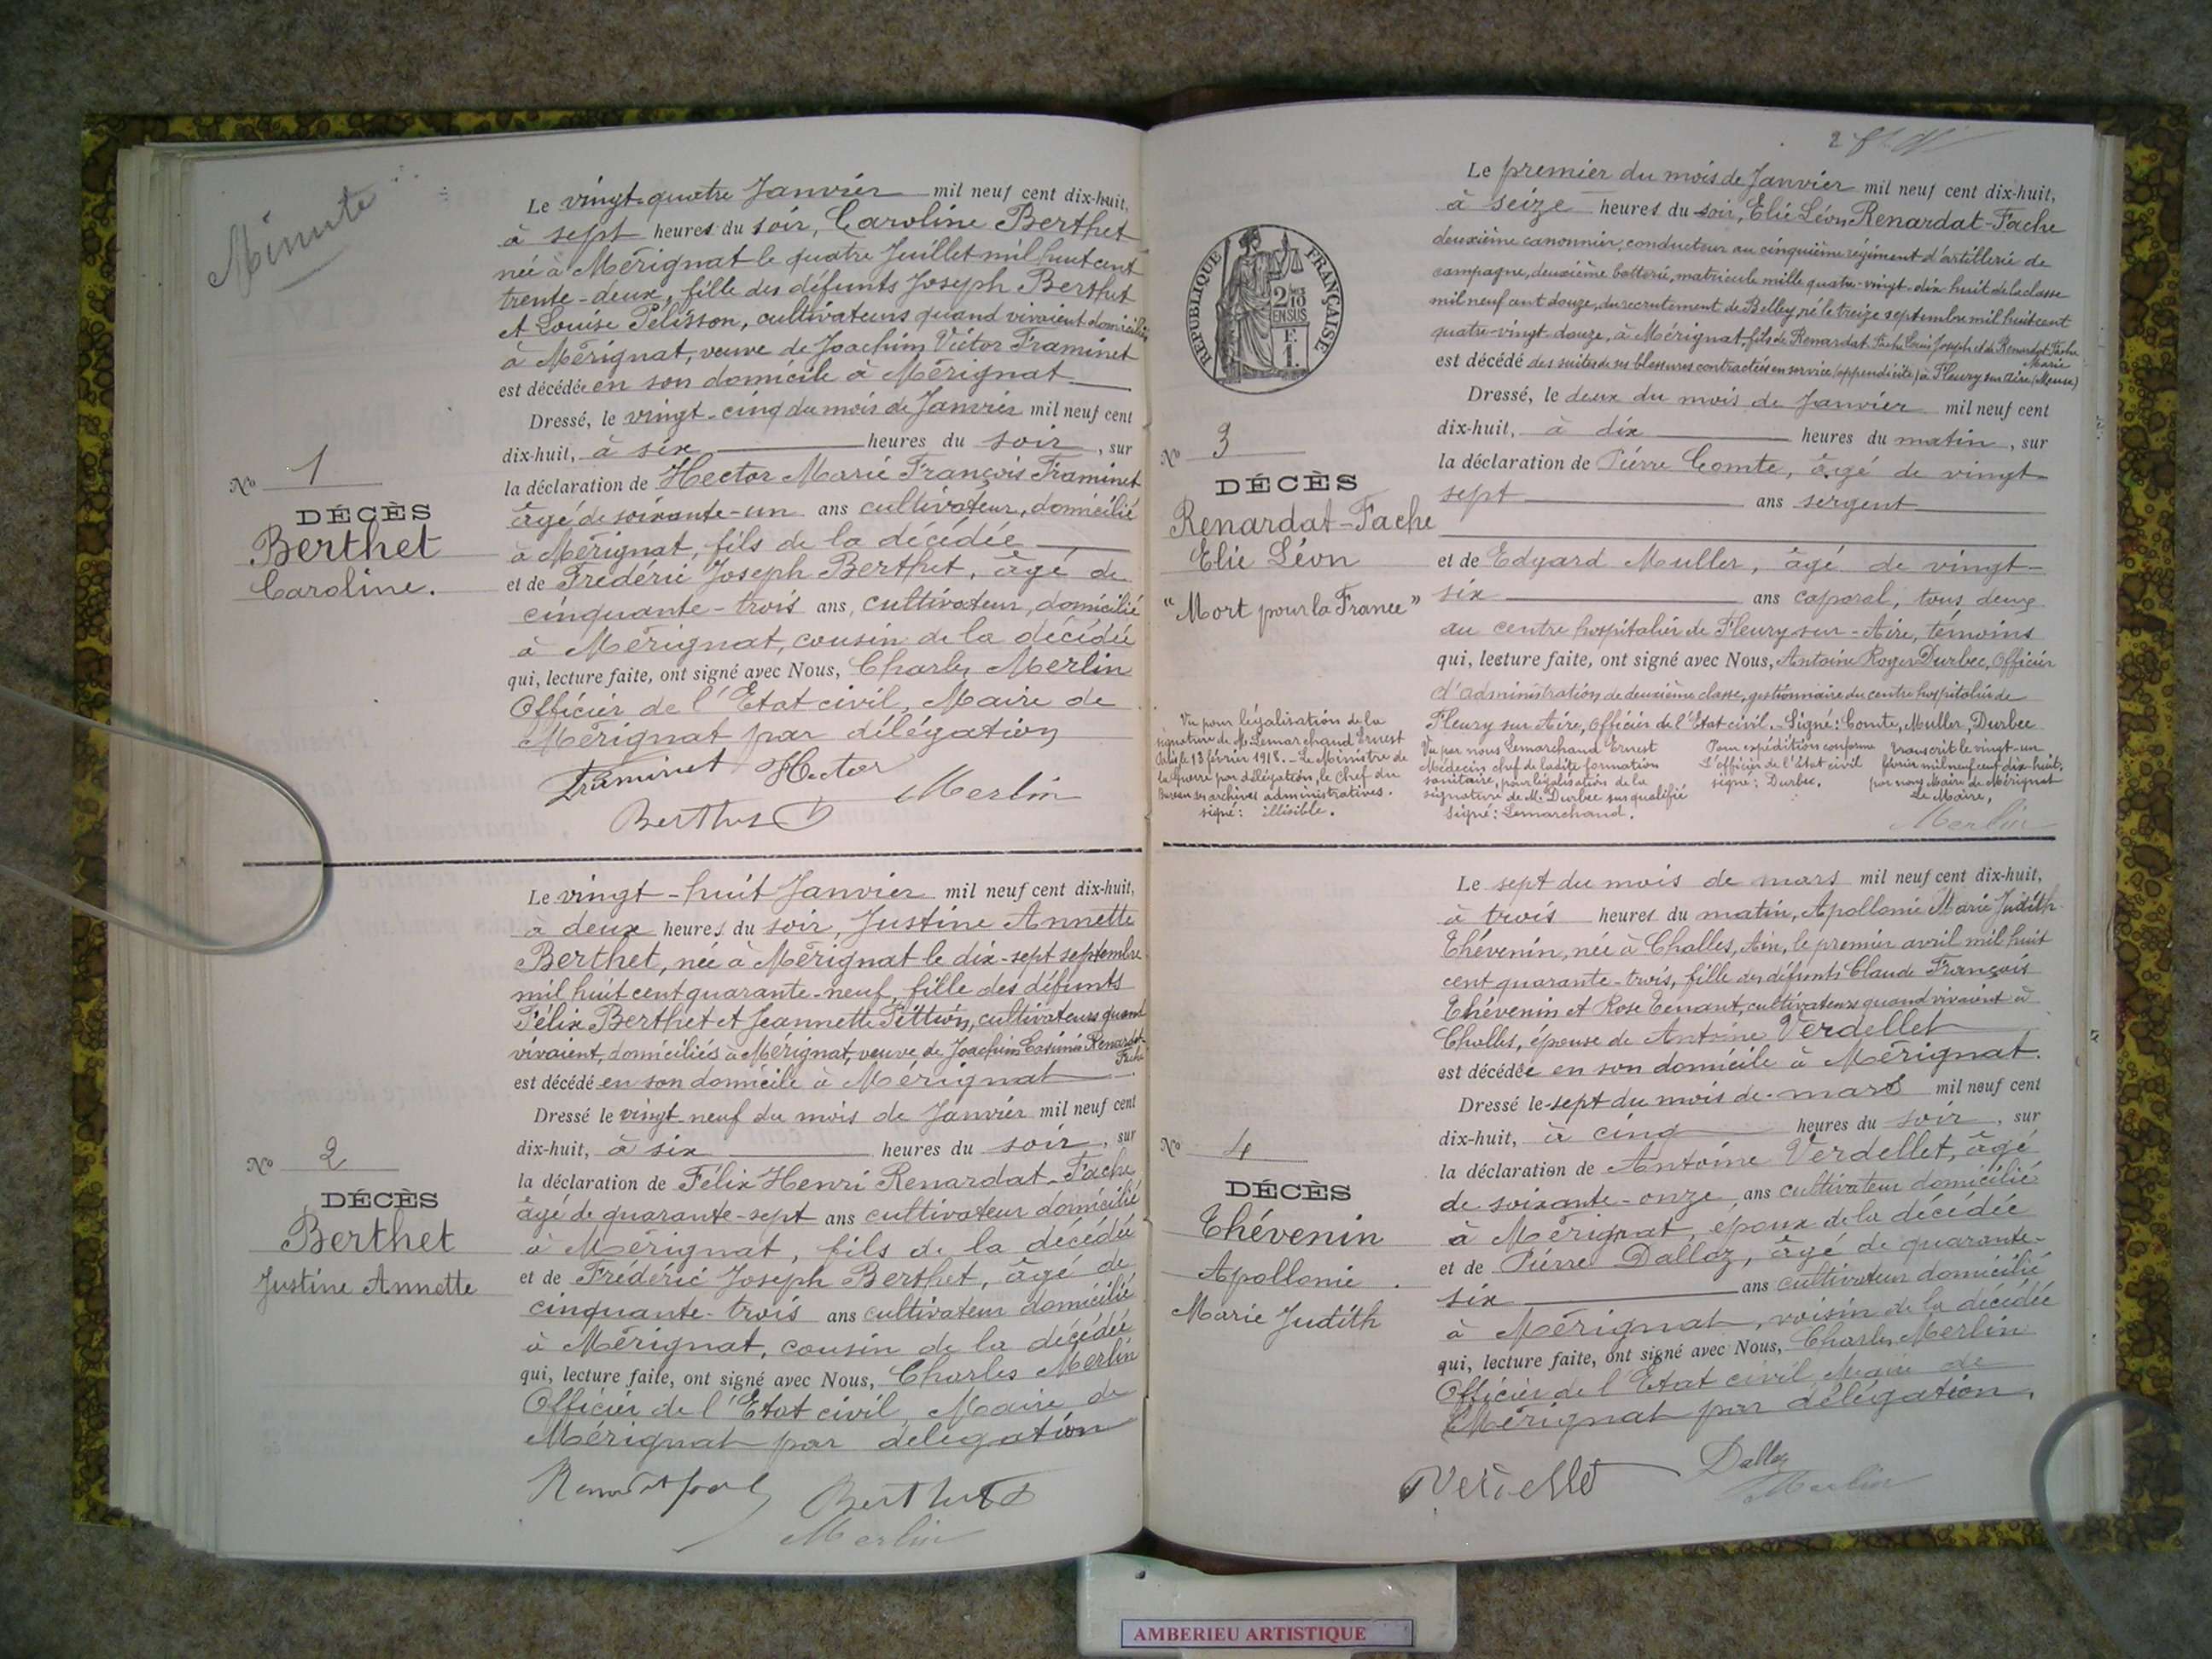 Minute
Le vingt-quatre Janvier mil neuf cent dix-huit,
à sept heures du soir, Caroline Berthet
née à Mérignat le quatre Juillet mil huit cent
trente-deux, fille des défunts Joseph Berthet
et Louise Pélisson, cultivateurs quand vivaient domiciliés
à Mérignat, veuve de Joachim Victor Framinet
est décédée en son domicile à Mérignat
Dressé, le vingt-cinq du mois de Janvier mil neuf cent
dix-huit, à six heures du soir, sur
la déclaration de Hector Marie François Framinet
âgé de soixante-un ans cultivateur, domicilié
à Mérignat, fils de la décédée
et de Frédéric Joseph Berthet, âgé de
cinquante-trois ans, cultivateur, domicilié
à Mérignat, cousin de la décédée
qui, lecture faite, ont signé avec Nous, Charles Merlin
Officier de l'Etat civil, Maire de
Mérignat par délégation
Framinet Hector
Berthet Merlin
No 1
DÉCÈS
Berthet
Caroline.
Le vingt-huit Janvier mil neuf cent dix-huit,
à deux heures du soir, Justine Annette
Berthet, née à Mérignat le dix-sept septembre
mil huit cent quarante-neuf, fille des défunts
Félix Berthet et Jeannette Pittion, cultivateurs quand
vivaient, domiciliés à Mérignat, veuve de Joachim Casimir Renardat-
Fache
est décédé en son domicile à Mérignat
Dressé le vingt-neuf du mois de Janvier mil neuf cent
dix-huit, à six heures du soir, sur
la déclaration de Félix Henri Renardat-Fache
âgé de quarante-sept ans cultivateur domicilié
à Mérignat, fils de la décédée
et de Frédéric Joseph Berthet, âgé de
cinquante-trois ans cultivateur domicilié
à Mérignat, cousin de la décédée
qui, lecture faite, ont signé avec Nous, Charles Merlin
Officier de l'Etat civil, Maire de
Mérignat par délégation
Berthet
Merlin
No 2
DÉCÈS
Berthet
Justine Annette
2
REPUBLIQUE FRANÇAISE
2/10
EN SUS
E.
1.
Le premier du mois de Janvier mil neuf cent dix-huit,
à seize heures du soir, Elie Léon Renardat-Fache
deuxième canonnier, conducteur au cinquième régiment d'artillerie de
campagne, deuxième batterie, matricule mille quatre-vingt-dix huit de la classe
mil neuf cent douze, du recrutement de Belley, né le treize septembre mil huit cent
quatre-vingt-douze, à Mérignat, fils de Renardat Fache Louis Joseph et de Renardat Fache
Marie
est décédé des suites de ses blessures contractées en service (appendicite) à Fleury sur Aire (Meuse)
Dressé, le deux du mois de Janvier mil neuf cent
dix-huit, à dix heures du matin, sur
la déclaration de Pierre Comte, âgé de vingt
sept ans sergent
et de Edgard Muller, âgé de vingt-
six ans caporal, tous deux
au centre hospitalier de Fleury-sur-Aire, témoins
qui, lecture faite, ont signé avec Nous, Antoine Roger Durbec, Officier
d'administration de deuxième classe, gestionnaire du centre hospitalier de
Fleury sur Aire, Officier de l'Etat civil. Signé: Comte, Muller, Durbec
No 3
DÉCÈS
Renardat-Fache
Elie Léon
"Mort pour la France"
Vu pour légalisation de la
signature de M. Lemarchand Ernest
le 13 février 1918. - Le Ministre de
la Guerre par délégation, le Chef du
Bureau des archives administratives.
signé: illisible.
Vu par nous Lemarchand Ernest
Médecin chef de ladite formation
sanitaire, pour légalisation de la
signature de M. Durbec susqualifié
Signé: Lemarchand.
Pour expédition conforme
L'officier de l'état civil
signé: Durbec.
Transcrit le vingt-un
février mil neuf cent dix-huit,
par nous Maire de Mérignat
Le Maire,
Merlin
Le sept du mois de mars mil neuf cent dix-huit,
à trois heures du matin, Apollonie Marie Judith
Thévenin, née à Challes, Ain, le premier avril mil huit
cent quarante-trois, fille des défunts Claude François
Thévenin et Rose Tenant, cultivateurs quand vivaient à
Challes, épouse de Antoine Verdellet
est décédée en son domicile à Mérignat.
Dressé le sept du mois de mars mil neuf cent
dix-huit, à cinq heures du soir, sur
la déclaration de Antoine Verdellet, âgé
de soixante-onze ans cultivateur domicilié
à Mérignat, époux de la décédée
et de Pierre Dalloz, âgé de quarante-
six ans cultivateur domicilié
à Mérignat, voisin de la décédée
qui, lecture faite, ont signé avec Nous, Charles Merlin
Officier de l'Etat civil, Maire de
Mérignat par délégation.
Verdellet Dalloz
Merlin
No 4
DÉCÈS
Thévenin
Apollonie
Marie Judith
AMBERIEU ARTISTIQUE